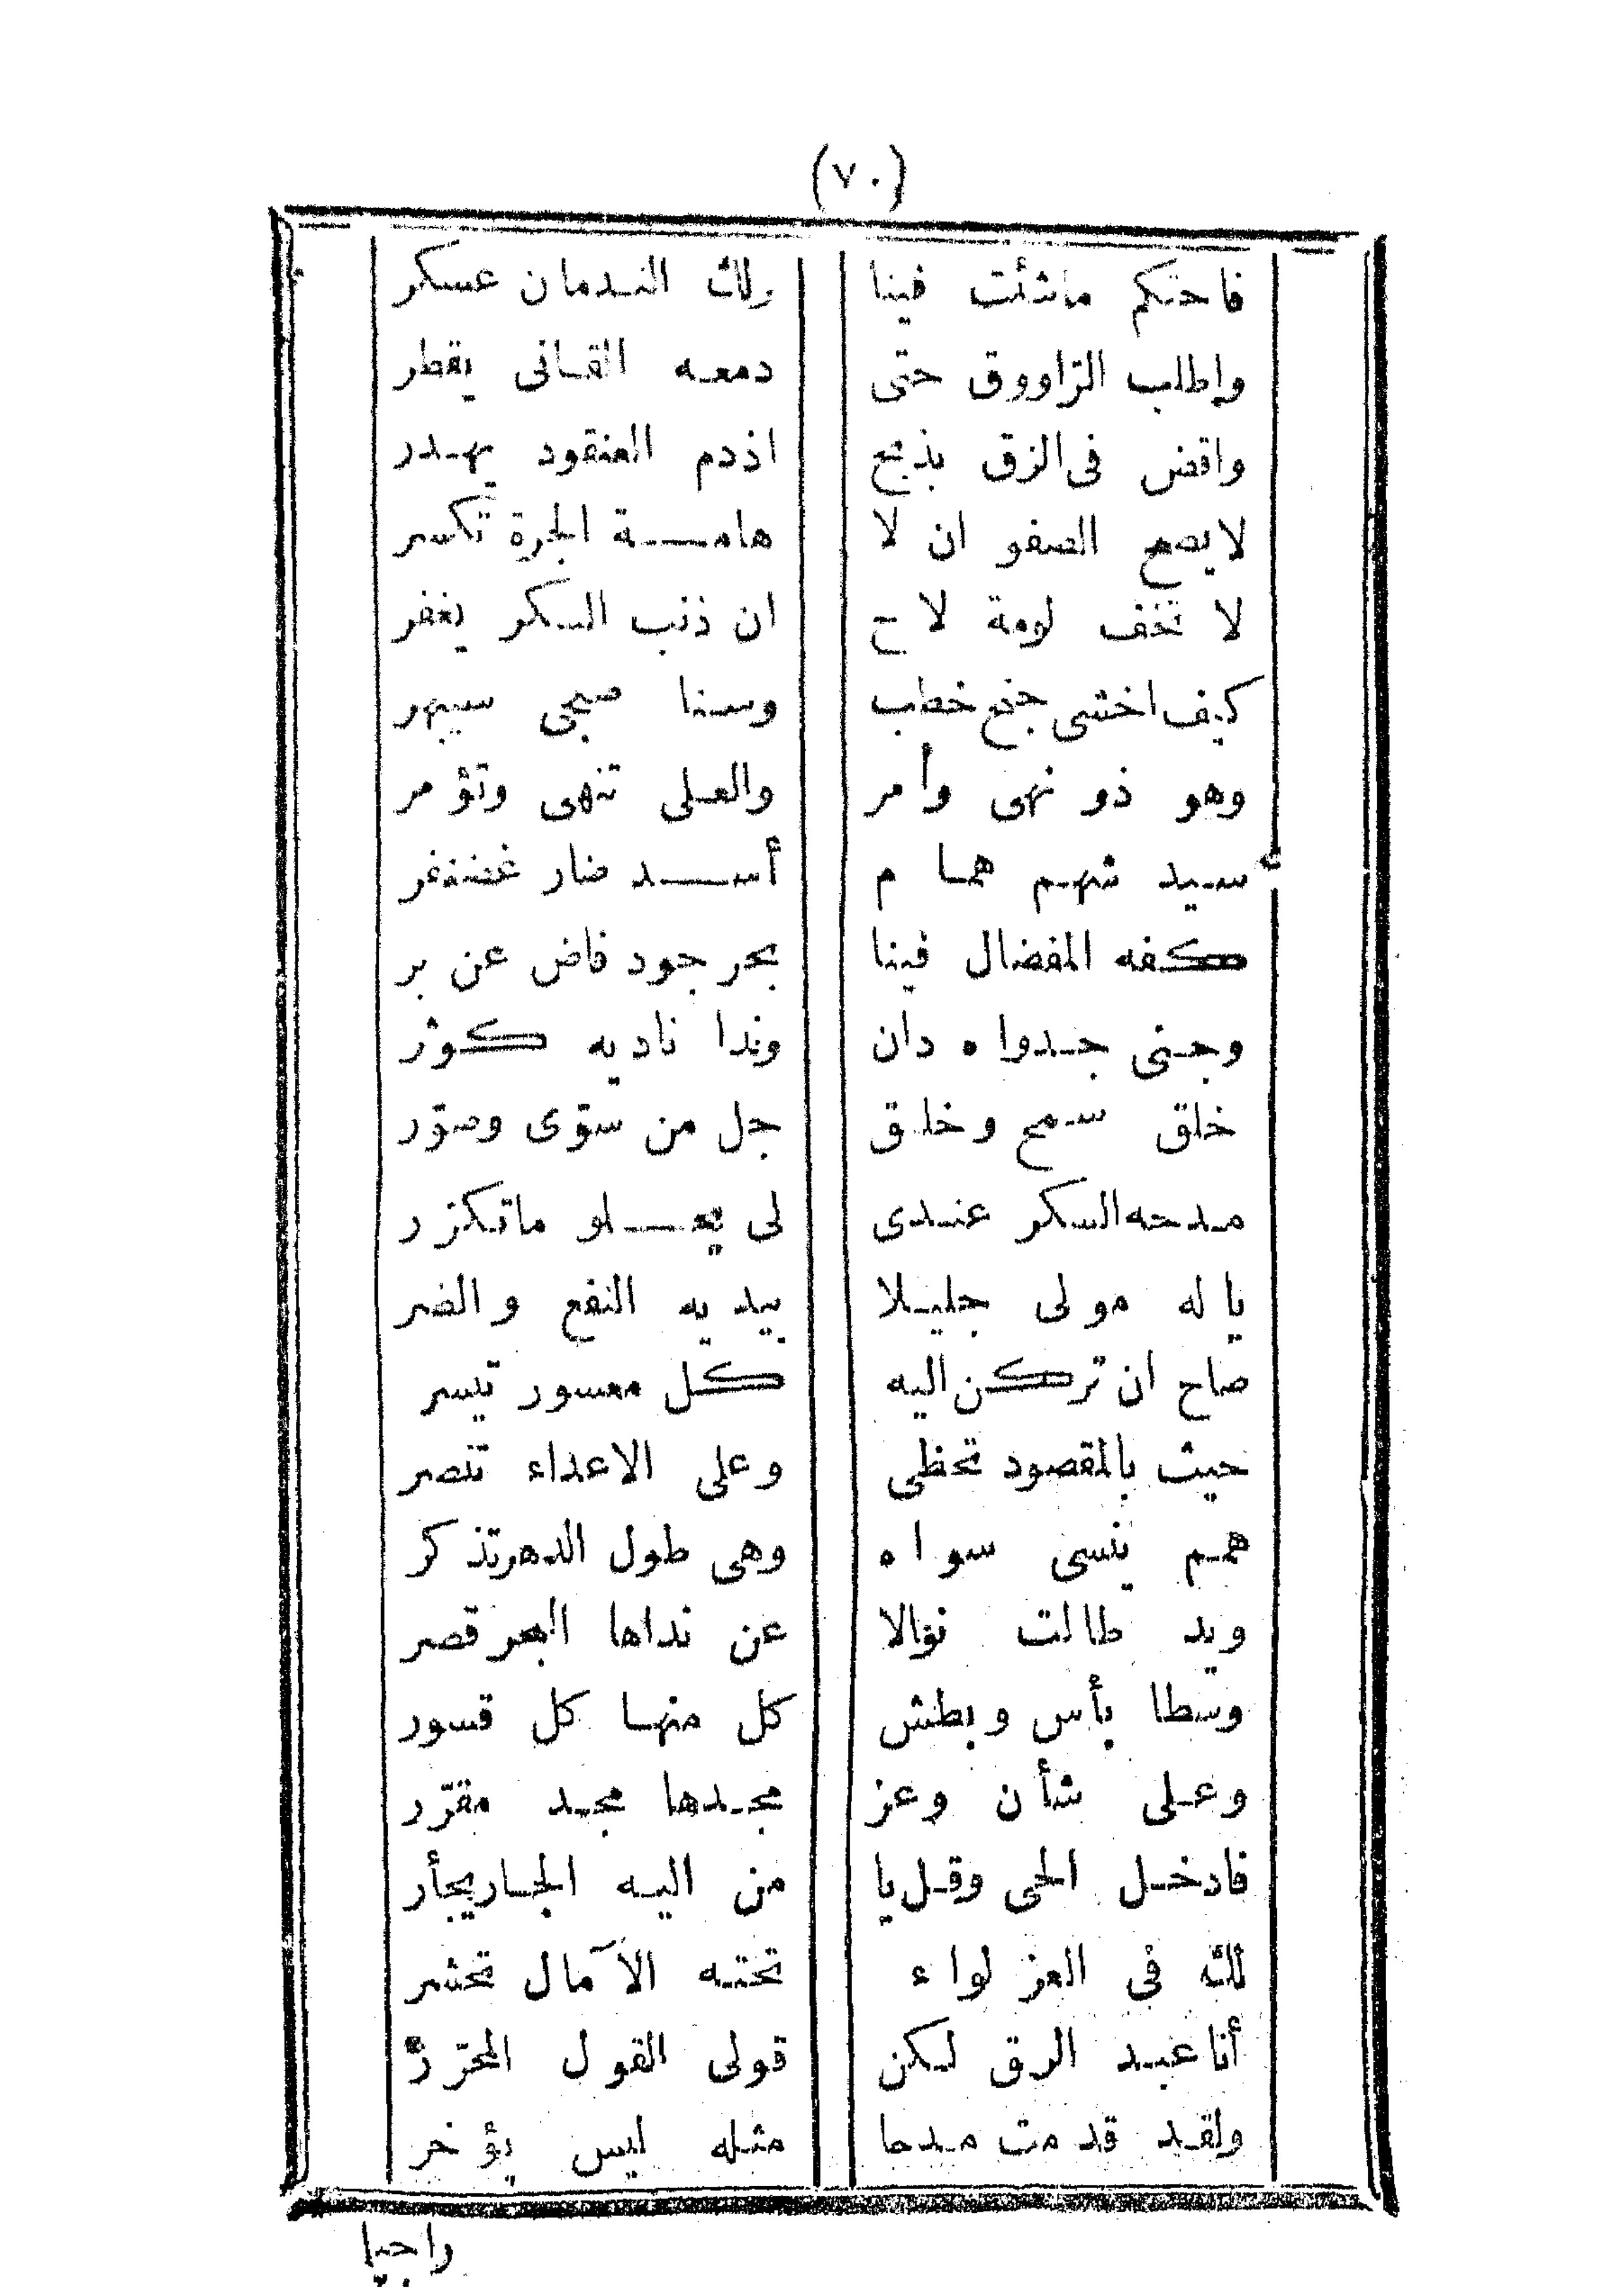 (٧٠)
فاحتكم ماشئت فينا ولك الندمان عسكر
واطلب الرّاووق حتى دمعه القانى يقطر
واقض فى الزق بذبح اذدم العنقود يهدر
لا يصح الصفو ان لا هامة الجرة تكسر
لا تخف لومة لاح ان ذنب السكر يغفر
كيف اخشى جنح خطب وسنا صبحى سيبهر
وهو ذو نهى وأمر والعلى تنهى وتؤمر
سيد شهم همام أسد ضار غضنفر
كفه المفضال فينا بحر جود فاض عن بر
وجنى جدواه دان وندا ناديه كوثر
خلق سمح وخلق جل من سوّى وصوّر
مدحه السكر عندى لى يحلو ماتكرر
ياله مولى جليلا بيديه النفع والضر
صاح ان تركن اليه كل معسور تيسر
حيث بالمقصود تحظى وعلى الاعداء تنصر
همم ينسى سواه وهى طول الدهر تذكر
ويد طالت نوالا عن نداها البحر قصر
وسطا بأس وبطش كل منها كل قسور
وعلى شأن وعز مجدها مجد مقرّر
فادخل الحى وقل يا من اليه الجار يجأر
لك فى العز لواء تحته الآمال تحشر
أنا عبد الرق لكن قولى القول المحرّر
ولقد قدمت مدحا مثله ليس يؤخر
راجيا